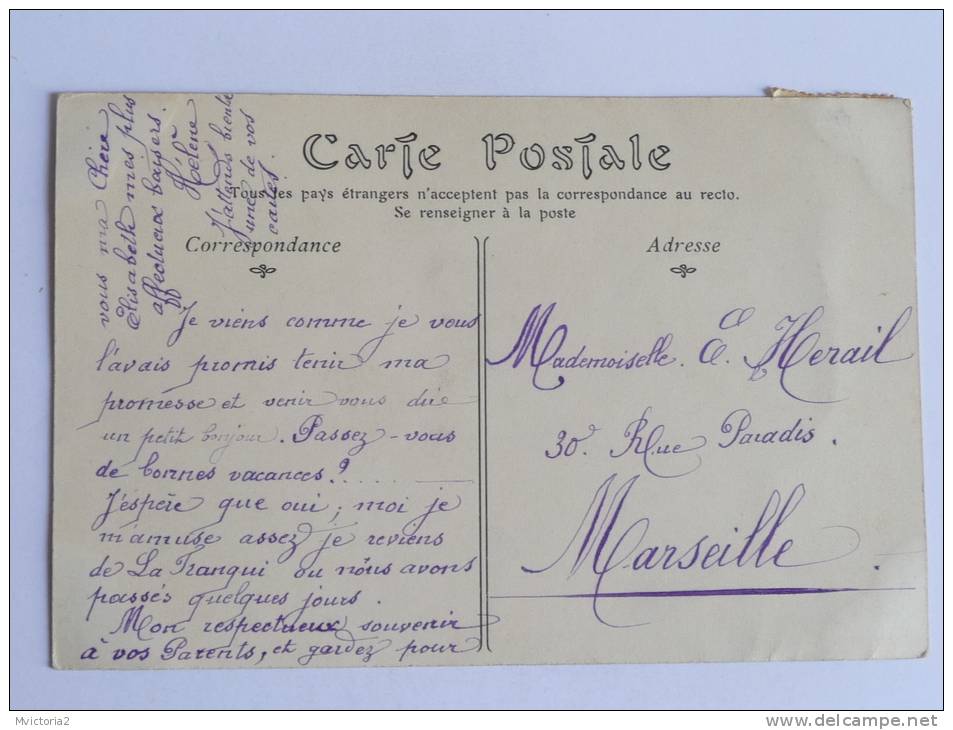 Carte Postale
Tous les pays étrangers n'acceptent pas la correspondance au recto.
Se renseigner à la poste
Correspondance
Adresse
Je viens comme je vous
l'avais promis tenir ma
promesse et venir vous dire
un petit bonjour. Passez-vous
de bonnes vacances?....
J'espère que oui; moi je
m'amuse assez je reviens
de La Tranqui ou nous avons
passés quelques jours.
Mon respectueux souvenir
à vos Parents, et gardez pour
vous ma Chère
Elisabeth mes plus
affectueux baisers.
Hélène
J'attends bientôt
une de vos
cartes.
Mademoiselle. E. Herail
30. Rue Paradis.
Marseille.
Mvictoria2
www.delcampe.net